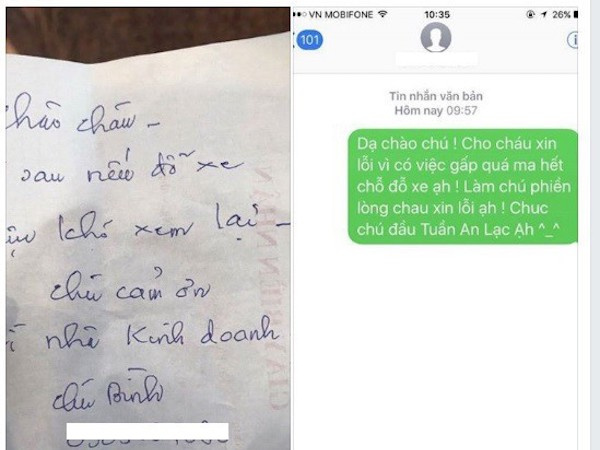 chào cháu -
sau nếu đỗ xe
khó xem lại -
chú cảm ơn
nhà Kinh doanh
chú Bình
VN MOBIFONE 10:35 26%
101
Tin nhắn văn bản
Hôm nay 09:57
Dạ chào chú ! Cho cháu xin
lỗi vì có việc gấp quá ma hết
chỗ đỗ xe ạh ! Làm chú phiền
lòng chau xin lỗi ạh ! Chuc
chú đầu Tuần An Lạc Ạh ^_^